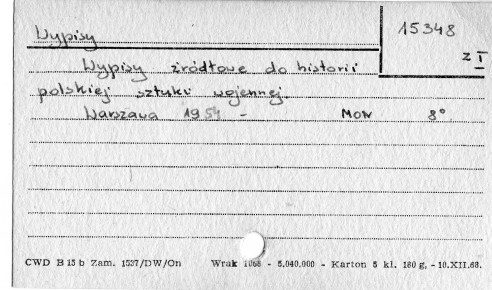 Wypisy
15348
z I
Wypisy źródłowe do historii
polskiej sztuki wojennej
Warszawa 1954 - MON 8°
CWD B 15 b Zam. 1537/DW/On Wrak 1068 - 5.040.000 - Karton 5 kl. 180 g. - 10.XII.68.